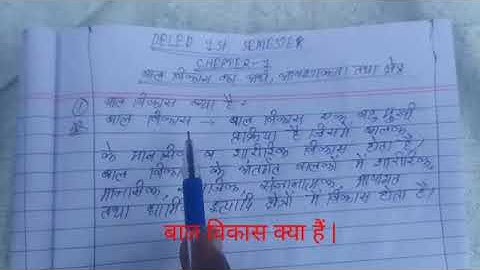 DELED 1ST SEMESTER
CHEPTER-1
बाल विकास का अर्थ, आवश्यकता तथा क्षेत्र
① बाल विकास क्या है -
बाल विकास → बाल विकास एक बहुमुखी
प्रक्रिया है जिसमें बालक
के मानसिक व शारीरिक विकास होता है।
बाल विकास के अंतर्गत बालकों में शारीरिक,
मानसिक, संज्ञानात्मक, भाषागत
तथा इत्यादि क्षेत्रों में विकास होता है।
बाल विकास क्या हैं |